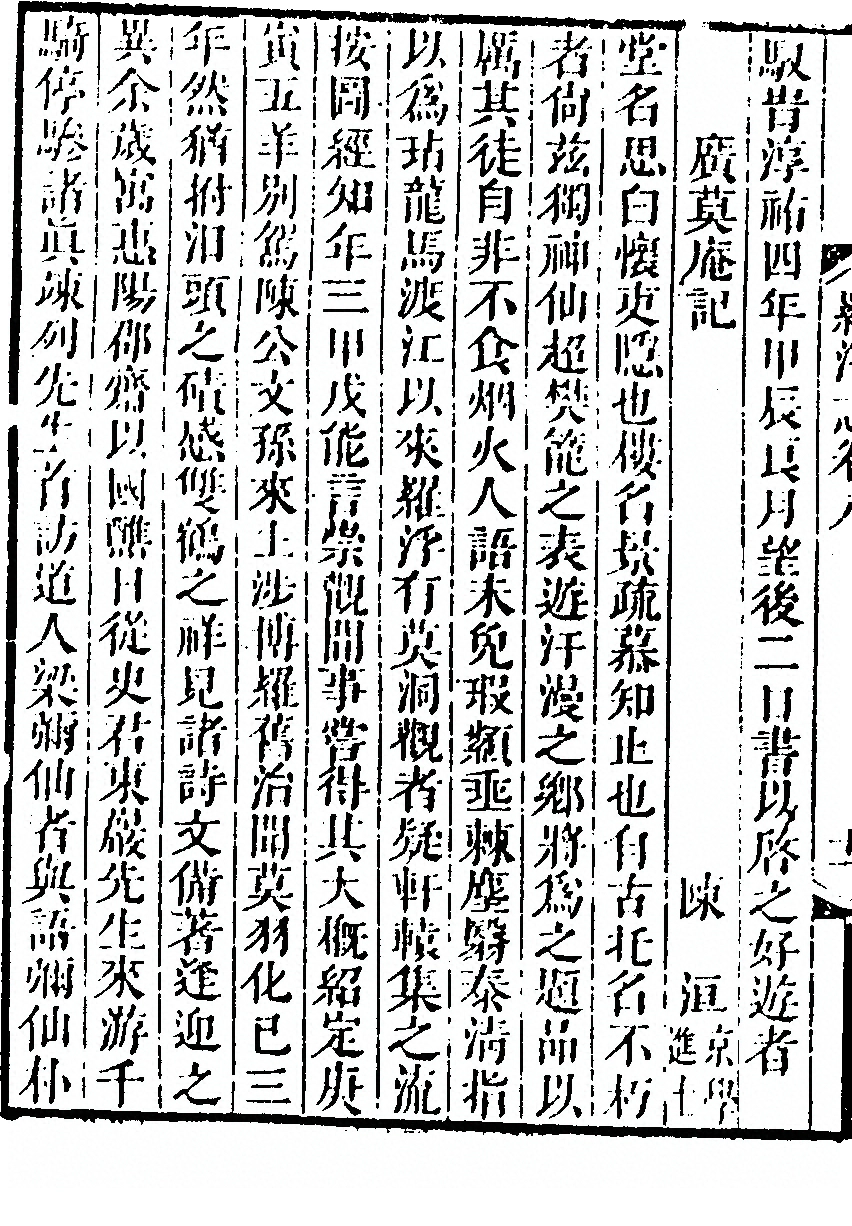 馭昔淳祐四年甲辰良月望後二日書以啓之好遊者
廣莫庵記 陳 洹 京學進士
堂名思白懷吏隱也樓名景疏慕知止也自古托名不朽
者尙茲獨神仙超樊籠之表遊汗漫之鄉將爲之題品以
厲其徒自非不食烟火人語未免瑕纇亟棘塵翳泰淸指
以爲玷龍馬渡江以來羅浮有莫洞觀者疑軒轅集之流
按圖經知年三甲戌能言崇觀間事嘗得其大槪紹定庚
寅五羊別駕陳公文孫來上涉博羅舊治聞莫羽化已三
年然猶拊汨頭之磧感雙鶴之祥見諸詩文備著逢迎之
異余歲寓惠陽郡齋以國醮日從史君東巖先生來游千
騎停驂諸眞竦列先生首訪道人梁彌仙者與語彌仙朴